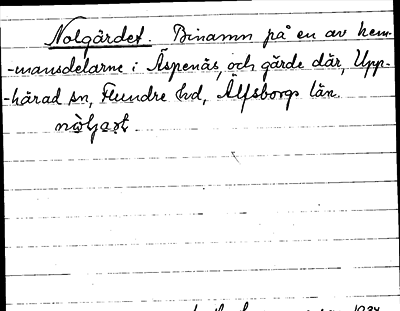 Nolgärdet. Binamn på en av hem-
-mansdelarne i Äspenäs, och gärde där, Upp-
-härad sn, Flundre hd, Älfsborgs län.